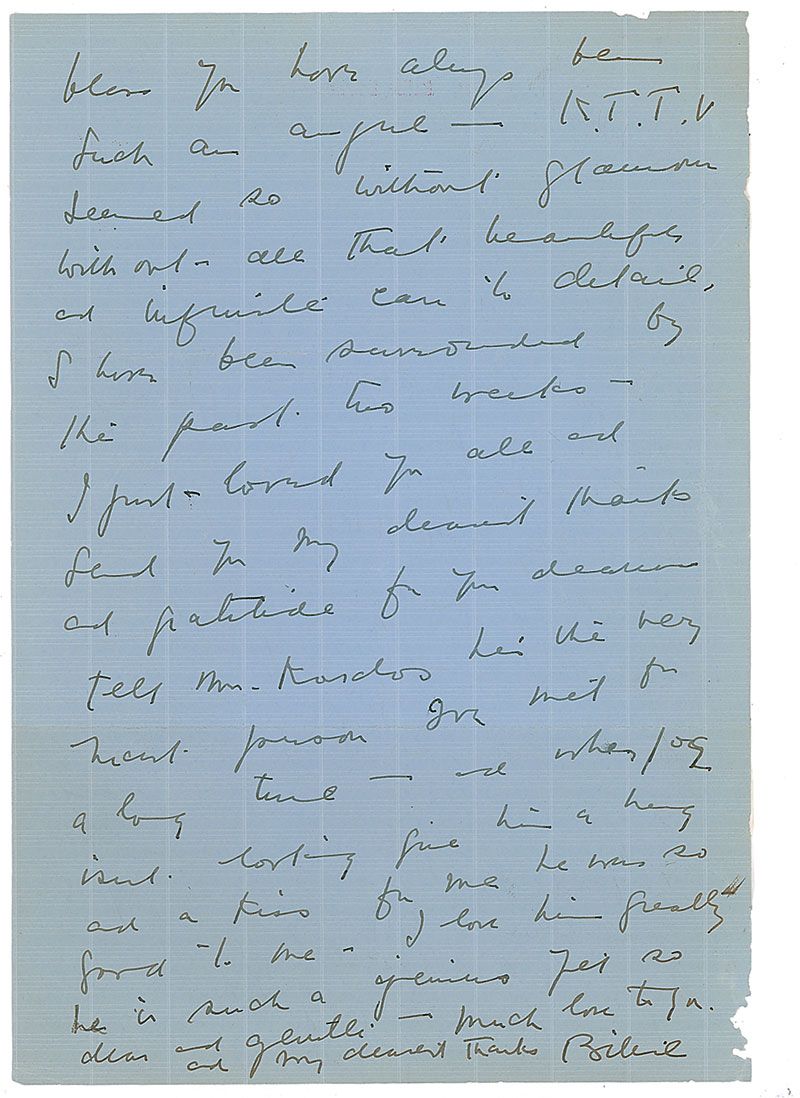 bless you have always been
Such an angel — K.T.T.V
seemed so without glamour
without - all that beautiful
and infinite care to detail,
I have been surrounded by
the past two weeks —
I just - loved you all and
send you my dearest thanks
and gratitude for your
tell Mr. he's the very
nicest person I've met for
a long time — and when
isn't looking give him a hug
and a kiss for me he was so
good to me - I love him greatly
he is such a genius yet so
dear and gentle — much love to you.
and my dearest thanks Billie